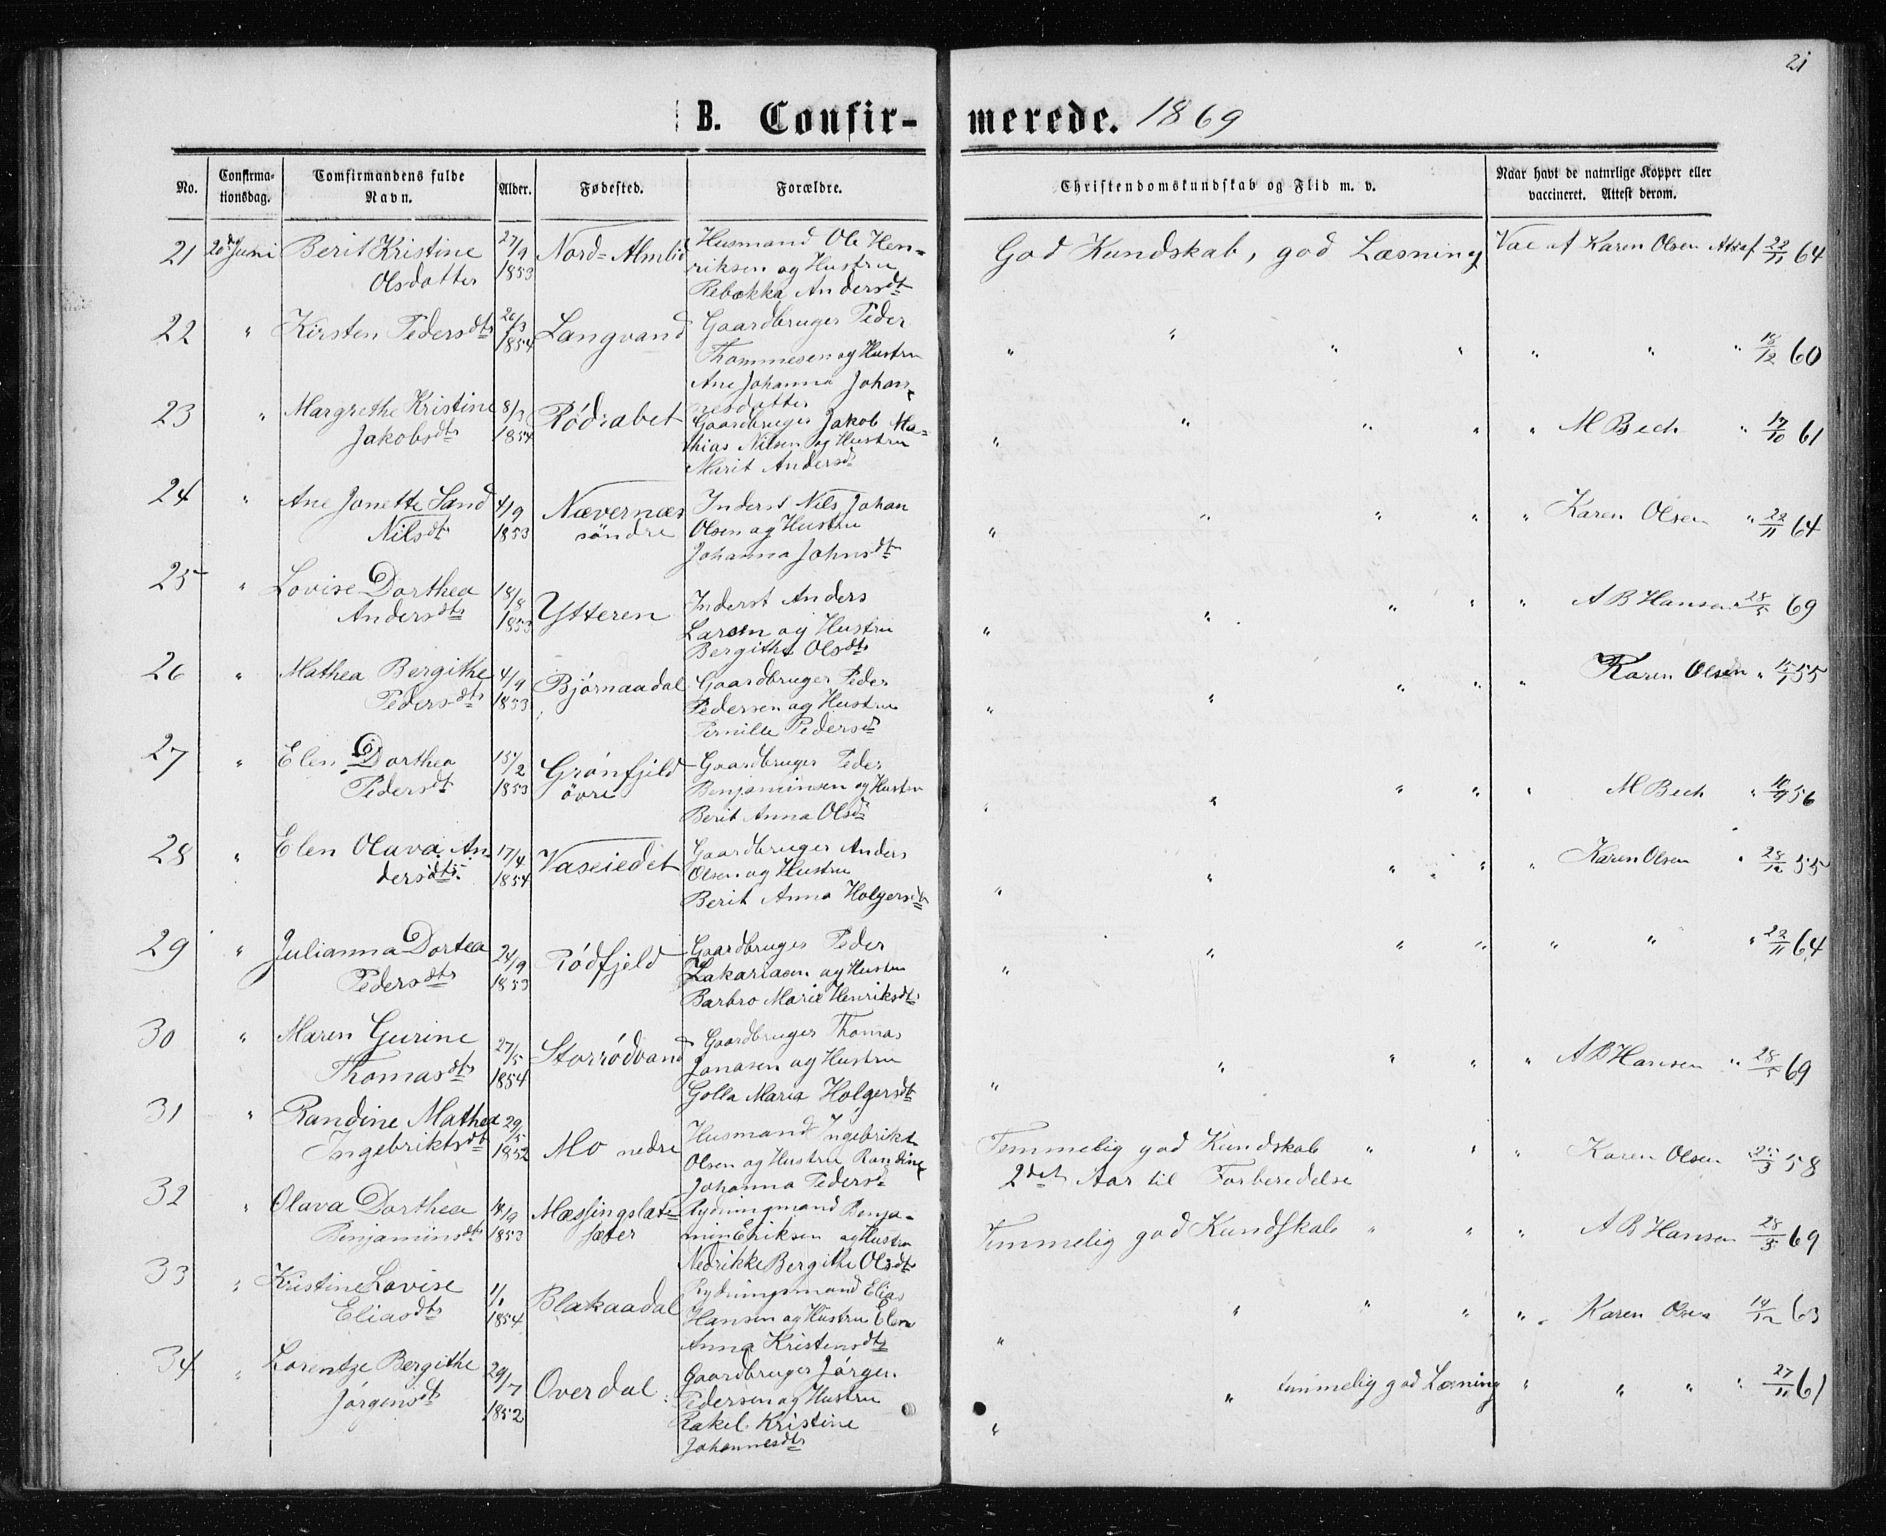 21
B. Confir- merede. 1869
No.
Confirma-
tionsdag.
Comfirmandens fulde
Navn.
Alder.
Fødested.
Forældre.
Christendomskundskab og Flid m. v.
Naar havt de naturlige Kopper eller
vaccineret. Attest derom.
21 20de Juni Berit Kristine
Olsdatter
27/9
1853
Nord-Almlid
Husmand Ole Hen-
riksen og Hustru
Rebekka Andersdt
God Kundskab, god Læsning Vac af Karen Olsen Attest 22/11 64
22 " Kirsten Pedersdt
26/3
1854
Langvand
Gaardbruger Peder
Thommesen og Hustru
Ane Johanna Johan-
nesdatter
" " " " " " " 18/12 60
23 " Margrethe Kristine
Jakobsdt
8/3
1854
Rødsabet
Gaardbruger Jakob Ma-
thias Nilsen og Hustru
Marit Andersdt
" " " " " M Bech " 17/10 61
24 " Ane Jonette Sand
Nilsdt
4/9
1853
Nævernæs
søndre
Inderst Nils Johan
Olsen og Hustru
Johanna Johnsdt
" " " " " Karen Olsen " 22/11 64
25 " Lovise Dorthea
Andersdt
18/8
1853
Ytteren
Inderst Anders
Larsen og Hustru
Bergithe Olsdt
" " " " " A B Hansen 28/5 69
26 " Mathea Bergithe
Pedersdt
4/9
1853
Bjørnaadal
Gaardbruger Peder
Pedersen og Hustru
Pernille Pedersdt
" " " " " Karen Olsen " 55
27 " Elen Dorthea
Pedersdt
15/2
1853
Grønfjeld
øvre
Gaardbruger Peder
Benjaminsen og Hustru
Berit Anna Olsdt
" " " " " M Bech " 10/9 56
28 " Elen Olava An-
dersdt
17/4
1854
Vaseiedet
Gaardbruger Anders
Olsen og Hustru
Berit Anna Holgersdt
" " " " " Karen Olsen " 28/12 55
29 " Julianna Dortea
Pedersdt
24/9
1853
Rødfjeld
Gaardbruger Peder
Zakariasen og Hustru
Barbro Marie Henriksdt
" " " " " " " 22/11 64
30 " Maren Gurine
Thomasdt
27/5
1854
Storrødvand
Gaardbruger Thomas
Jonasen og Hustru
Golla Maria Holgersdt
" " " " " A B Hansen " 28/5 69
31 " Randine Mathea
Ingebriktsdt
29/5
1852
Mo nedre
Husmand Ingebrikt
Olsen og Hustru Randine
Johanna Pedersdt
Temmelig god Kundskab " " " Karen Olsen 25/3 58
2det Aar til Forberedelse
32 " Olava Dorthea
Benjaminsdt
18/9
1853
Messingslet-
sæter
Rydningsmand Benja-
min Eriksen og Hustru
Nedrikke Bergithe Olsdt
Temmelig god Kundskab " " " A B Hansen 28/5 69
33 " Kristine Lovise
Eliasdt
1/1
1854
Blakaadal
Rydningsmand Elias
Hansen og Hustru Elen
Anna Kristensdt
" " " " " Karen Olsen 19/12 63
34 " Lorentze Bergithe
Jørgensdt
29/7
1852
Overdal
Gaardbruger Jørgen
Pedersen og Hustru
Rakel Kristine
Johannesdt
" " temmelig god Læsning " " " " 27/11 61